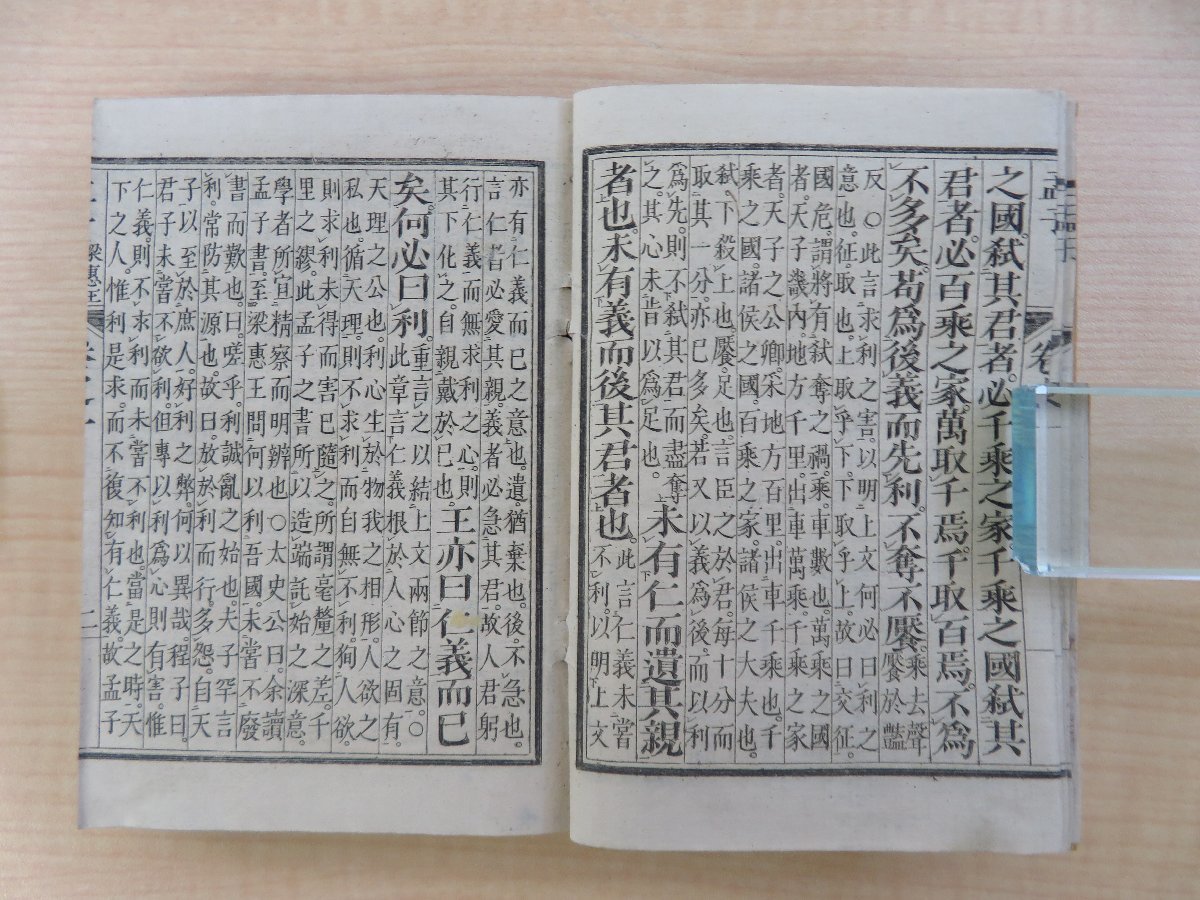 孟子
之國。弑其君者。必千乘之家。千乘之國。弑其
君者。必百乘之家。萬取千焉。千取百焉。不爲
不多矣。苟爲後義而先利。不奪不饜。
乘去聲。
饜於豔
反。○此言求利之害。以明上文何必曰利之
意也。征取也。上取乎下。下取乎上。故曰交征。
國危。謂將有弑奪之禍。乘。車數也。萬乘之國
者。天子畿內。地方千里。出車萬乘。千乘之家
者。天子之公卿。采地方百里。出車千乘也。千
乘之國。諸侯之國。百乘之家。諸侯之大夫也。
弑。下殺上也。饜。足也。言臣之於君。每十分而
取其一分。亦已多矣。若又以義爲後。而以利
爲先。則不弑其君而盡奪
之。其心未肯以爲足也。
未有仁而遺其親
者也。未有義而後其君者也。
此言仁義未嘗
不利。以明上文
亦有仁義而已之意也。遺。猶棄也。後。不急也。
言仁者必愛其親。義者必急其君。故人君躬
行仁義而無求利之心。則
其下化之。自親戴於己也。
王亦曰。仁義而已
矣。何必曰利。
重言之。以結上文兩節之意。○
此章言仁義根於人心之固有。
天理之公也。利心生於物我之相形。人欲之
私也。循天理。則不求利而自無不利。徇人欲。
則求利未得而害已隨之。所謂毫釐之差。千
里之繆。此孟子之書所以造端託始之深意。
學者所宜精察而明辨也。○太史公曰。余讀
孟子書至梁惠王問何以利吾國。未嘗不廢
書而歎也。曰。嗟乎。利誠亂之始也。夫子罕言
利。常防其源也。故曰。放於利而行。多怨。自天
子以至於庶人。好利之弊。何以異哉。程子曰。
君子未嘗不欲利。但專以利爲心則有害。惟
仁義。則不求利而未嘗不利也。當是之時。天
下之人。惟利是求。而不復知有仁義。故孟子
梁惠王
二